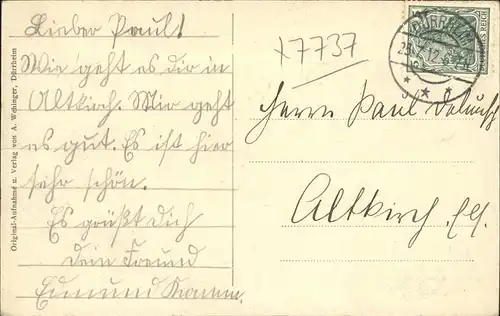 Lieber Paul!
Wie geht es dir in
Altkirch. Mir geht
es gut. Es ist hier
sehr schön.
Es grüßt dich
dein Freund
Edmund
Original-Aufnahme u. Verlag von A. Wehinger, Dürrheim
x7737
DÜRRHEIM
DEUTSCHES REICH
Herrn Paul
Altkirch. Els.